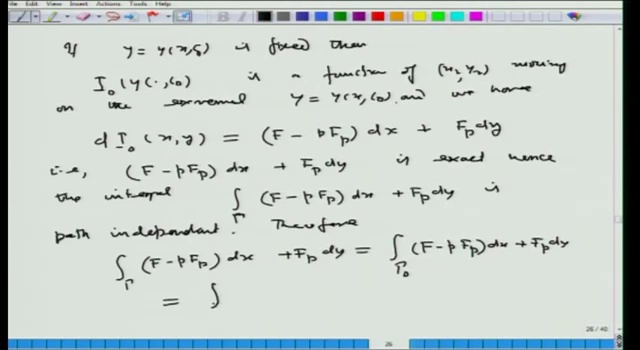 File Edit View Insert Actions Tools Help
If y = y(x,c₀) is fixed then
I₀(y(·,c₀) is a function of (x₂,y₂) moving
on the extremal y = y(x,c₀) and we have
d I₀(x,y) = (F - pFₚ) dx + Fₚ dy
i.e, (F - pFₚ) dx + Fₚ dy is exact hence
the integral ∫_Γ (F - pFₚ) dx + Fₚ dy is
path independant. Therefore
∫_Γ (F - pFₚ) dx + Fₚ dy = ∫_Γ₀ (F - pFₚ) dx + Fₚ dy
= ∫
26 / 40
26